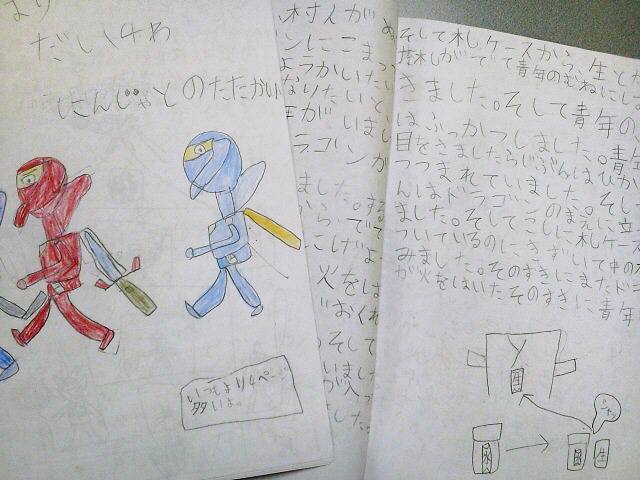 より
だい14わ
にんじゃとのたたかい
いつもより4ページ
多いよ。
村人が
ンにこまっ
ようかいたい
なりたいと
がいまし
ラゴンが
ました。する
らでて
こにげよ
火をは
おくれ
そして
いまし
が入っ
した。
そして札ケースから、生と
札がでて青年のむねにし
きました。そして青年の
はふっかつしました。青年
目をさましたらじぶんはひか
つつまれていました。そし
んはドラゴンのまえに立
ました。そしてこしに札ケース
ついているのにきずいて中の
みました。そのすきにまたド
が火をはいたそのすきに青年
生